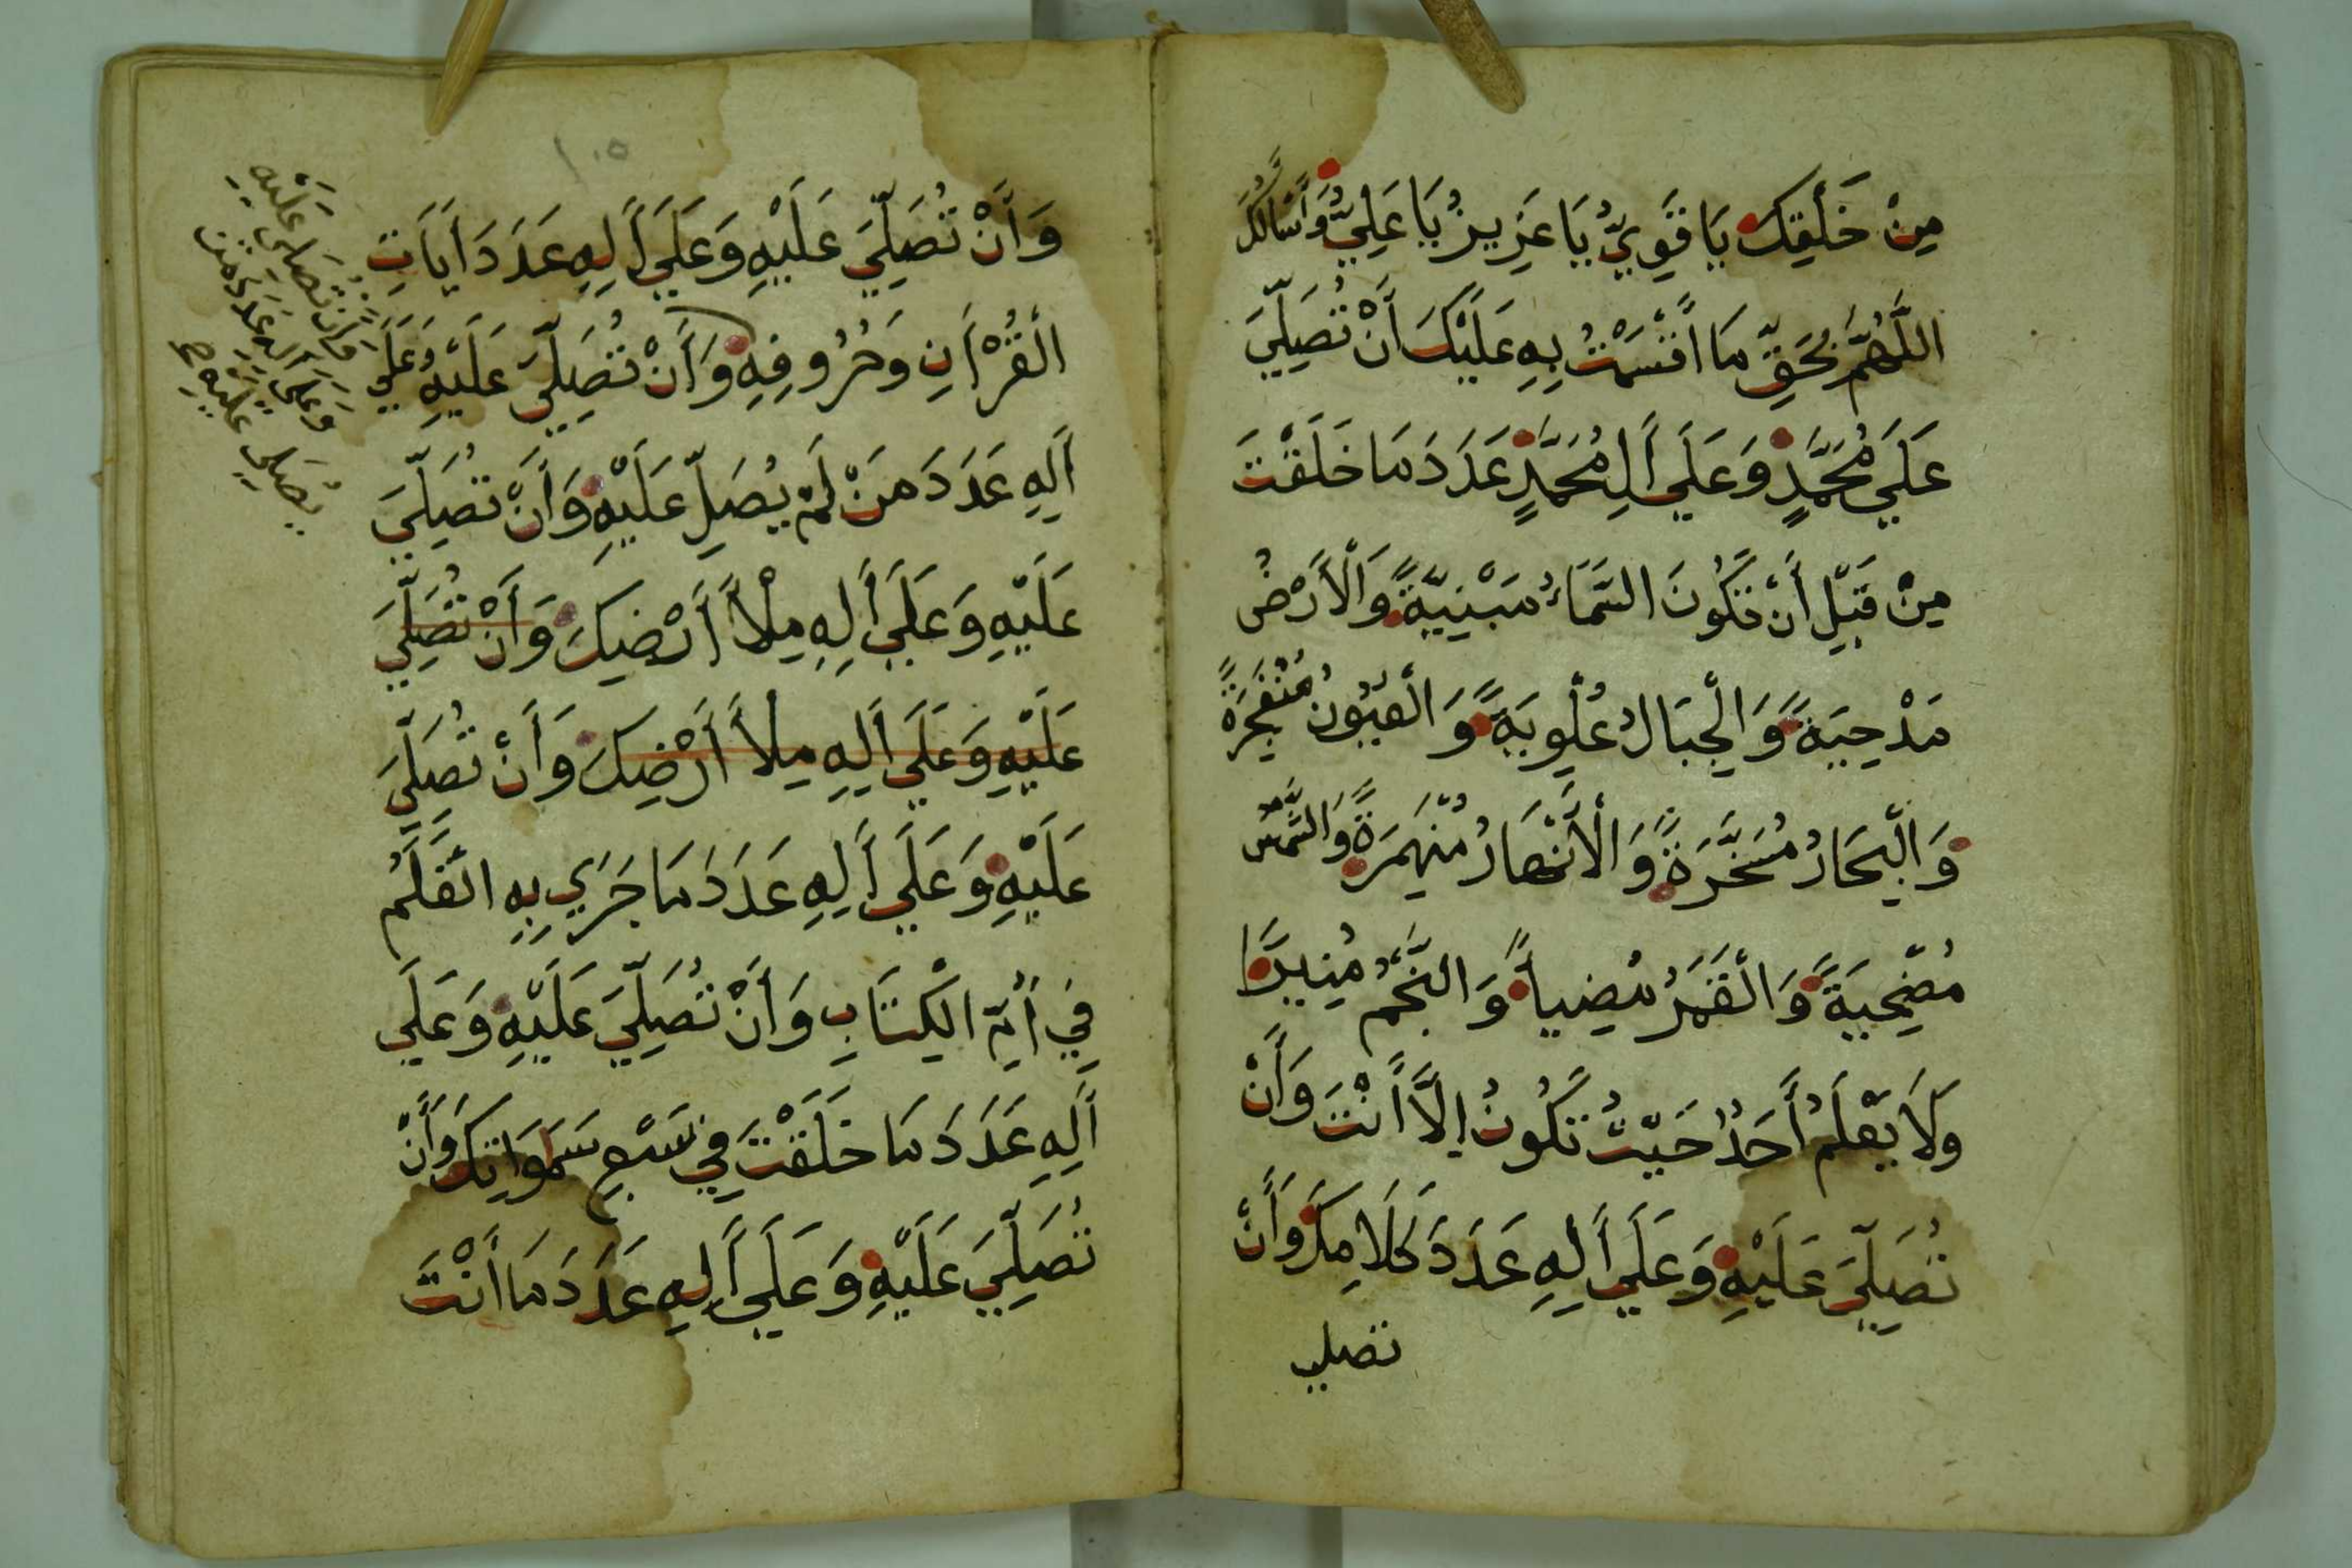 مِنْ خَلْقِكَ يَا قَوِيُّ يَا عَزِيزُ يَا عَلِيُّ وَأَسْأَلُكَ
اللَّهُمَّ بِحَقِّ مَا أَقْسَمْتُ بِهِ عَلَيْكَ أَنْ تُصَلِّيَ
عَلَي مُحَمَّدٍ وَعَلَي أَلِ مُحَمَّدٍ عَدَدَ مَا خَلَقْتَ
مِنْ قَبْلِ أَنْ تَكُونَ السَّمَاءُ مَبْنِيَّةً وَالْأَرْضُ
مَدْحِيَةً وَالْجِبَالُ عُلْوِيَةً وَالْعُيُونُ مُنْفَجِرَةً
وَالْبِحَارُ مُسَخَّرَةً وَالْأَنْهَارُ مُنْهَمِرَةً وَالشَّمْسُ
مُضْحِيَةً وَالْقَمَرُ مُضِياً وَالنَّجْمُ مُنِيرًا
وَلَا يَعْلَمُ أَحَدٌ حَيْثُ تَكُونُ إِلَّا أَنْتَ وَأَنْ
تُصَلِّيَ عَلَيْهِ وَعَلَي أَلِهِ عَدَدَ كَلَامِكَ وَأَنْ
تصلي
١٠٥
وَأَنْ تُصَلِّيَ عَلَيْهِ وَعَلَي أَلِهِ عَدَدَ أَيَاتِ
الْقُرْأَنِ وَحُرُوفِهِ وَأَنْ تُصَلِّيَ عَلَيْهِ وَعَلَي
أَلِهِ عَدَدَ مَنْ لَمْ يُصَلِّ عَلَيْهِ وَأَنْ تُصَلِّيَ
عَلَيْهِ وَعَلَي أَلِهِ مِلْأَ أَرْضِكَ وَأَنْ تُصَلِّيَ
عَلَيْهِ وَعَلَي أَلِهِ مِلْأَ أَرْضِكَ وَأَنْ تُصَلِّيَ
عَلَيْهِ وَعَلَي أَلِهِ عَدَدَ مَا جَرَي بِهِ الْقَلَمُ
فِي أُمِّ الْكِتَابِ وَأَنْ تُصَلِّيَ عَلَيْهِ وَعَلَي
أَلِهِ عَدَدَ مَا خَلَقْتَ فِي سَبْعِ سَمَوَاتِكَ وَأَنْ
تُصَلِّيَ عَلَيْهِ وَعَلَي أَلِهِ عَدَدَ مَا أَنْتَ
وَأَنْ تُصَلِّي عَلَيْهِ
وَعَلَي أَلِهِ عَدَدَ مَنْ
يُصَلِّي عَلَيْهِ صح